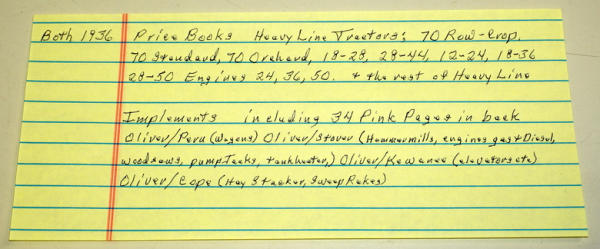 Both 1936 Price Books Heavy Line Tractors: 70 Row-Crop,
70 Standard, 70 Orchard, 18-28, 28-44, 12-24, 18-36
28-50 Engines 24, 36, 50. + the rest of Heavy Line
Implements including 34 Pink Pages in back
Oliver/Peru (Wagons) Oliver/Stover (Hammermills, engines gas & Diesel,
woodsaws, pumpJacks, tankheater,) Oliver/Kewanee (elevators etc)
Oliver/Cope (Hay Stacker, Sweep Rakes)